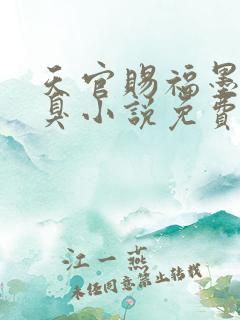 天官赐福墨
真小说免费
江一燕
未经同意禁止转载